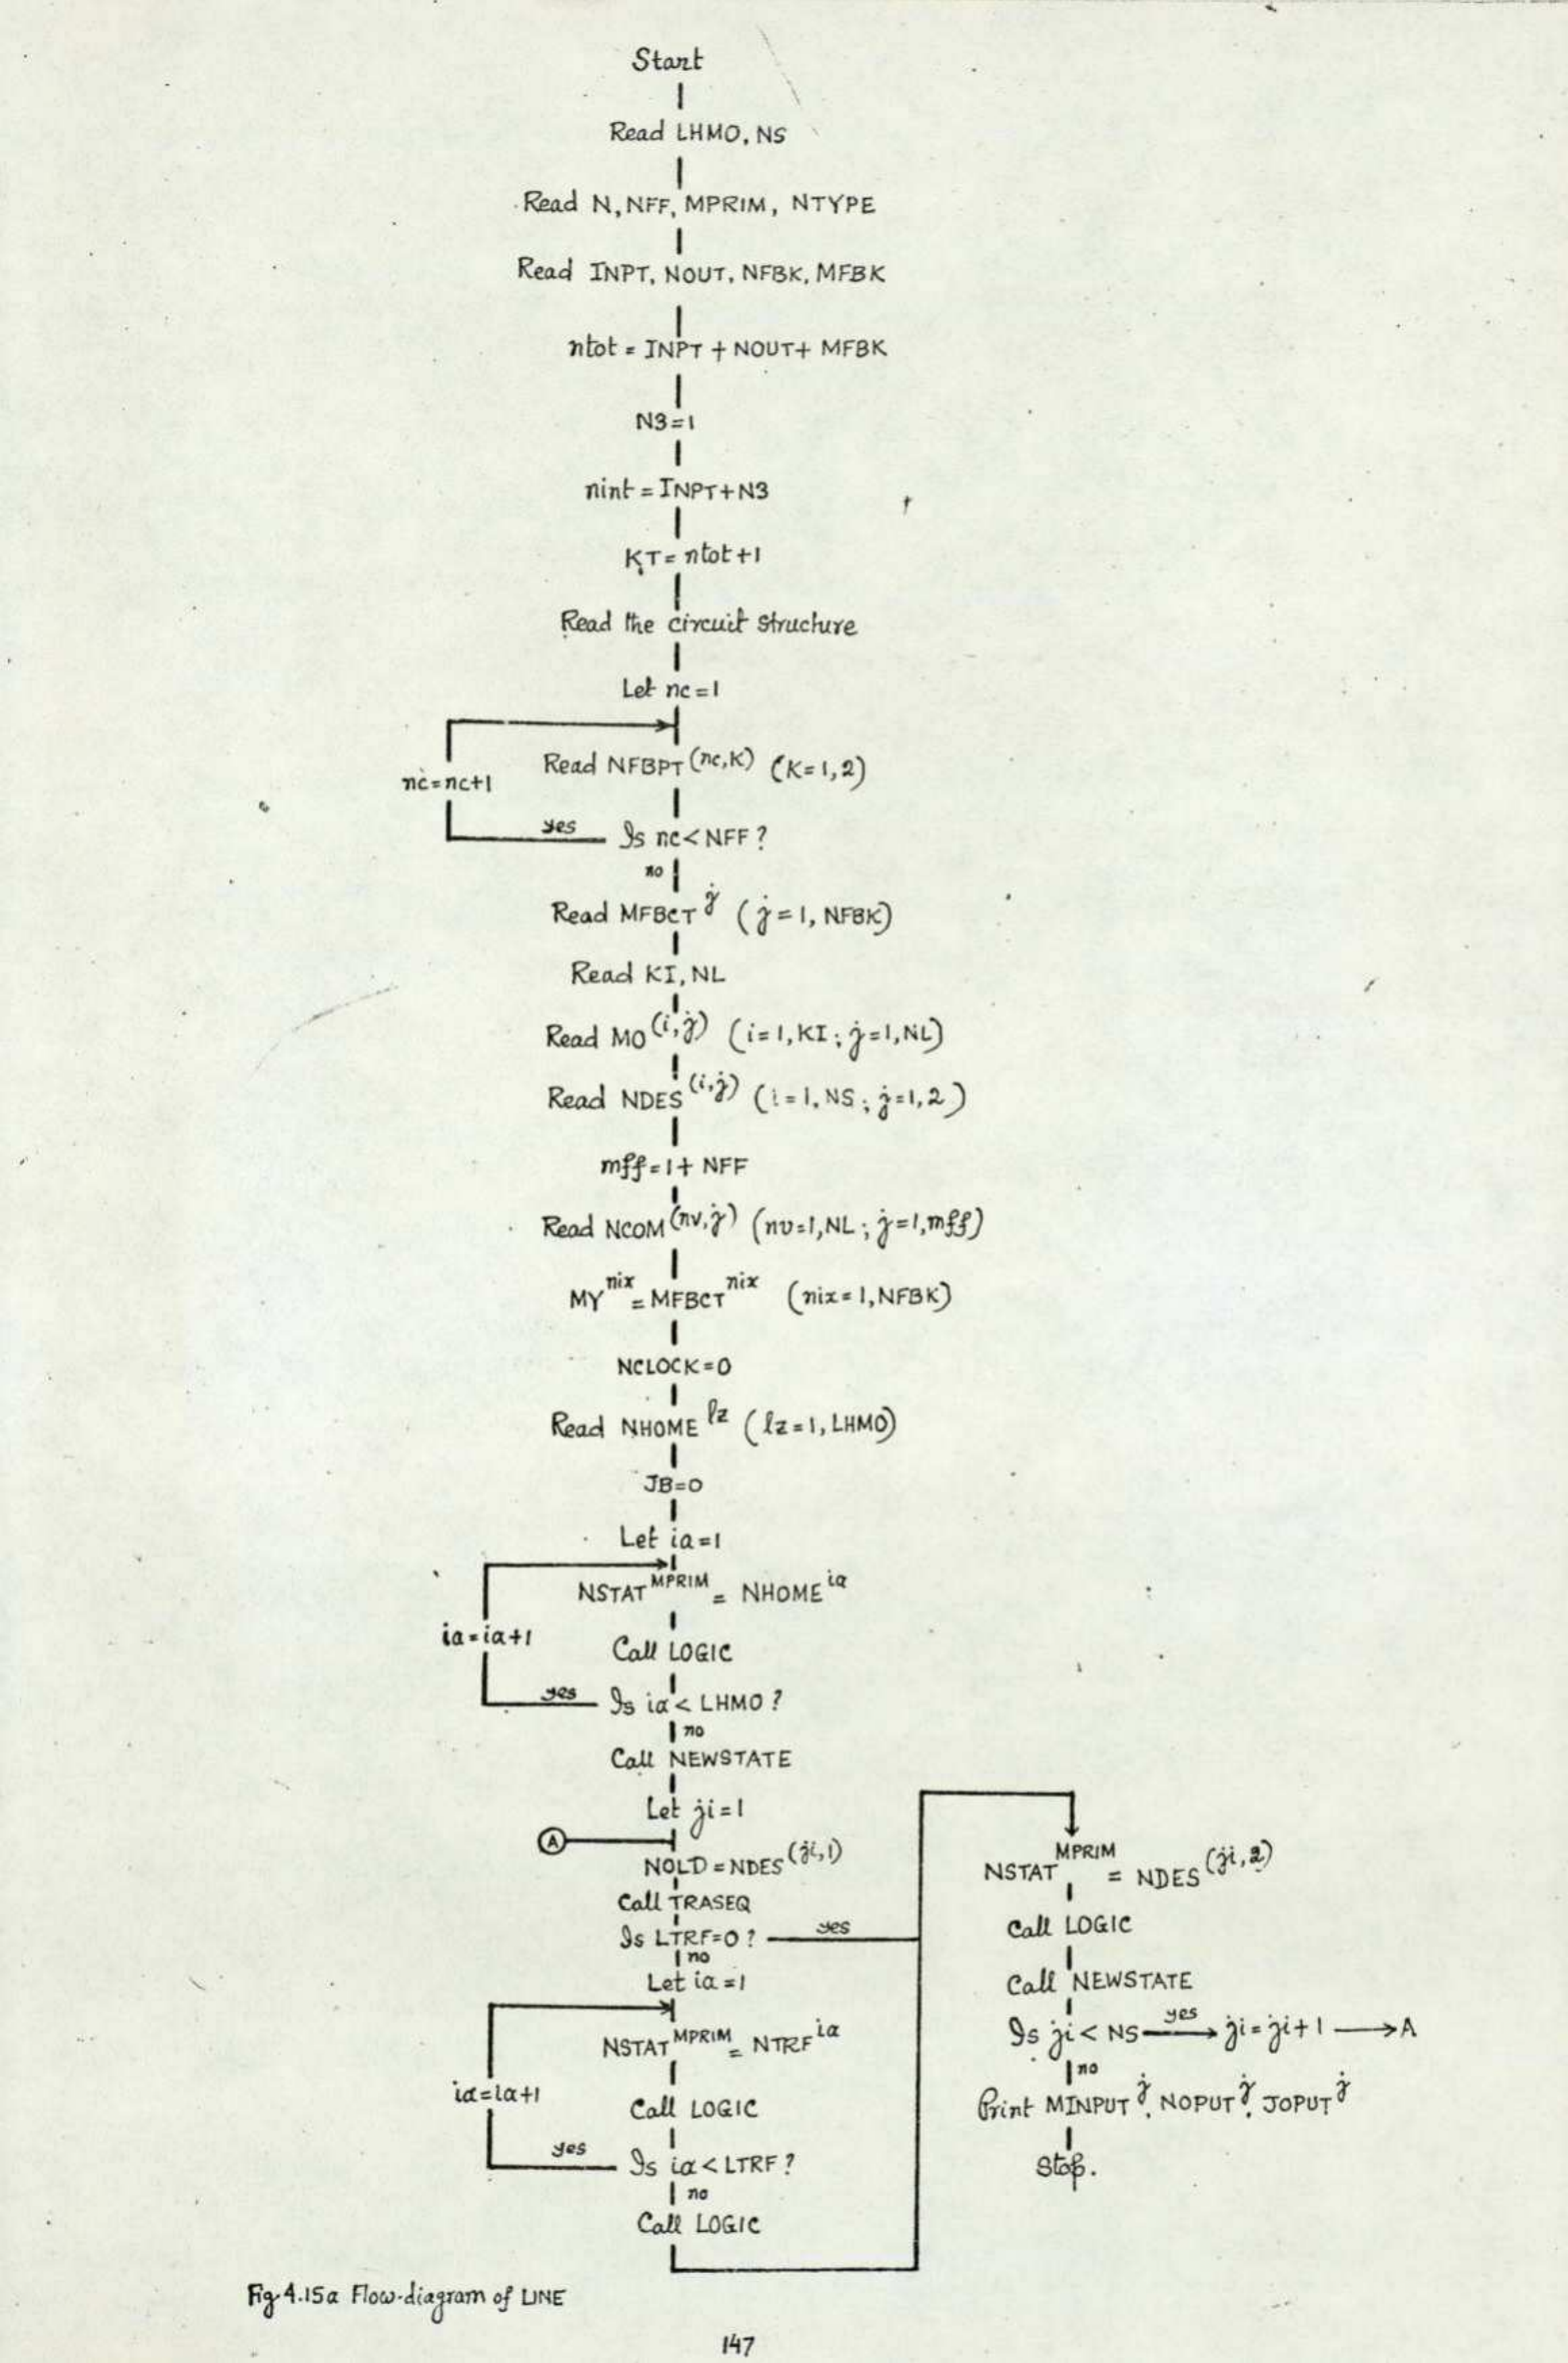 Start
Read LHMO, NS
Read N, NFF, MPRIM, NTYPE
Read INPT, NOUT, NFBK, MFBK
ntot = INPT + NOUT + MFBK
N3=1
nint = INPT+N3
KT= ntot+1
Read the circuit structure
Let nc=1
Read NFBPT(nc,K) (K=1,2)
nc=nc+1
yes Is nc< NFF ?
no
Read MFBCT j (j=1, NFBK)
Read KI, NL
Read MO(i,j) (i=1,KI; j=1,NL)
Read NDES(i,j) (i=1,NS; j=1,2)
mff=1+ NFF
Read NCOM(nv,j) (nv=1,NL; j=1,mff)
MY nix = MFBCT nix (nix=1,NFBK)
NCLOCK=0
Read NHOME lz (lz=1, LHMO)
JB=0
Let ia=1
NSTAT MPRIM = NHOME ia
ia=ia+1
Call LOGIC
yes Is ia< LHMO ?
no
Call NEWSTATE
Let ji=1
A
NOLD = NDES(ji,1)
Call TRASEQ
Is LTRF=0 ? yes
no
Let ia=1
NSTAT MPRIM = NTRF ia
ia=ia+1
Call LOGIC
yes Is ia<LTRF ?
no
Call LOGIC
NSTAT MPRIM = NDES(ji,2)
Call LOGIC
Call NEWSTATE
Is ji< NS yes ji=ji+1 A
no
Print MINPUT j, NOPUT j, JOPUT j
Stop.
Fig. 4.15a Flow-diagram of LINE
147